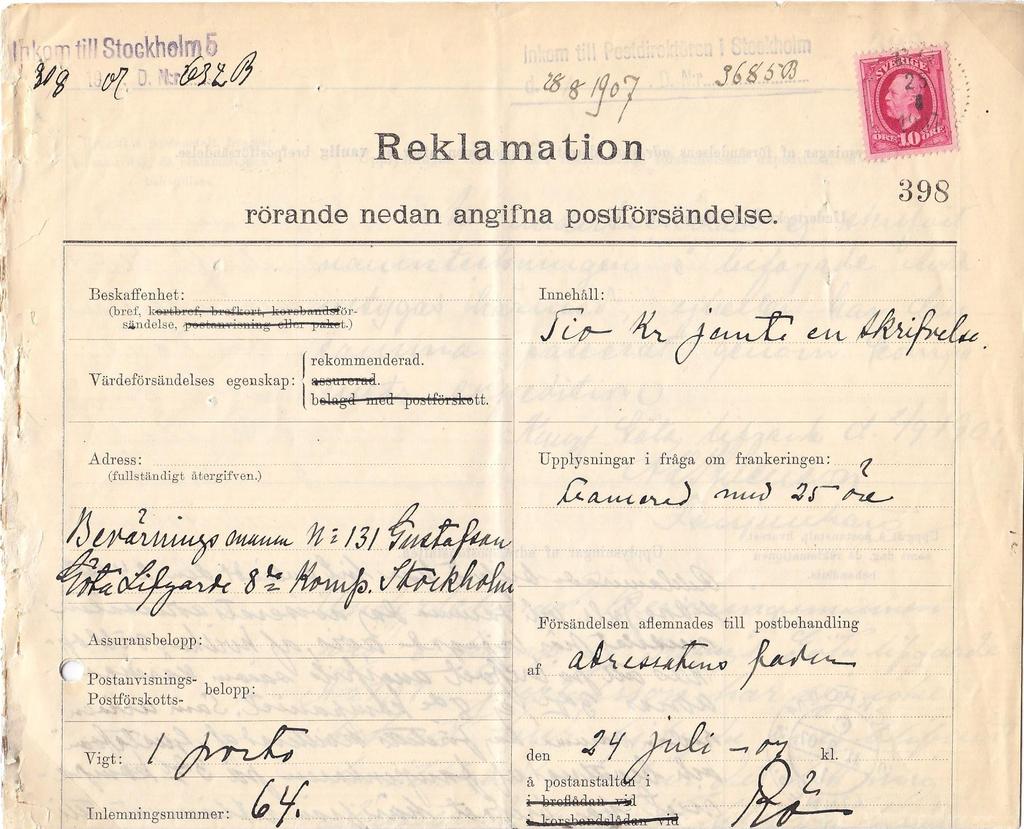 Inkom till Stockholm 5
30 8 1907 D. N:r 632 B
Inkom till Postdirektören i Stockholm
d. 28 8 1907 D. N:r 3685 B
SVERIGE
23
8
ÖRE 10 ÖRE
Reklamation
398
rörande nedan angifna postförsändelse.
Beskaffenhet:
(bref, kortbref, brefkort, korsbandsför-
sändelse, postanvisning eller paket.)
Värdeförsändelses egenskap:
rekommenderad.
assurerad.
belagd med postförskott.
Adress:
(fullständigt återgifven.)
Bevärningsmann N: 131 Gustafson
Göta Lifgarde 8de Komp. Stockholm
Assuransbelopp:
Postanvisnings-
Postförskotts-
belopp:
Vigt: 1 porto
Inlemningsnummer: 64.
Innehåll:
Tio Kr jemte en skrifvelse.
Upplysningar i fråga om frankeringen:
med 25 öre
Försändelsen aflemnades till postbehandling
af adressatens fader
den 24 juli -07 kl.
å postanstalten i Rö
i breflådan vid
i korsbandslådan vid